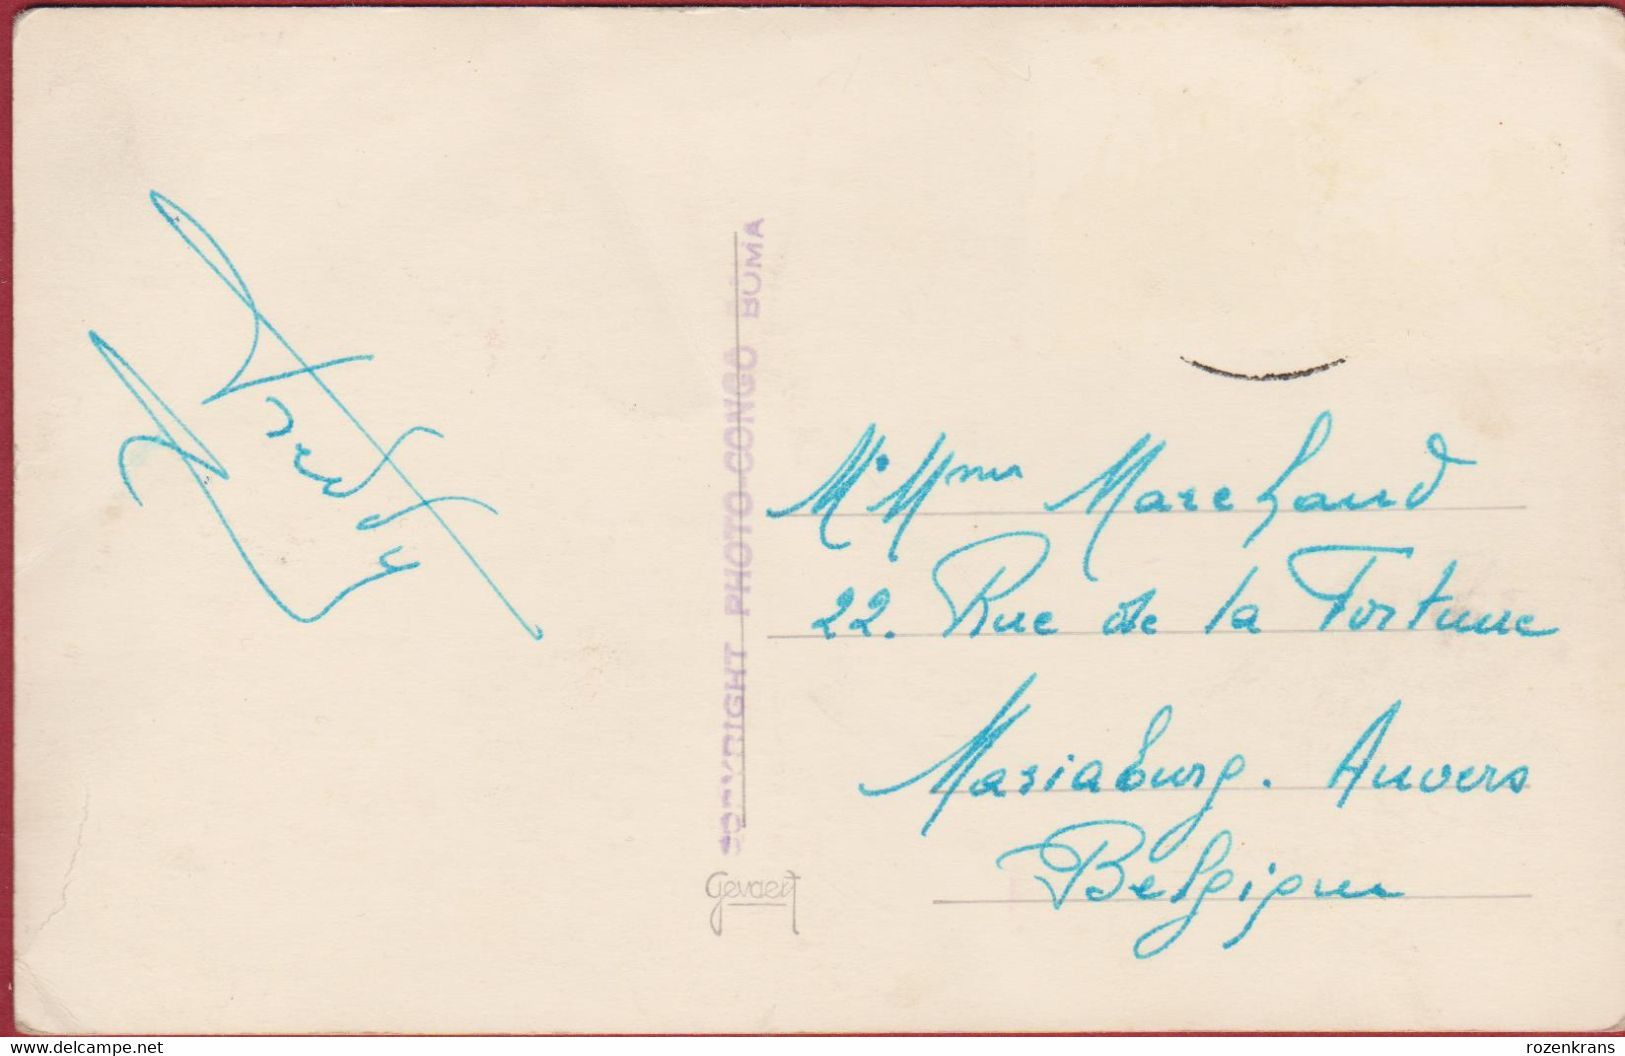 Freddy
COPYRIGHT PHOTO-CONGO BOMA
Gevaert
Mr Mme Marchand
22. Rue de la Fortune
Mariaburg. Anvers
Belgique
delcampe.net
rozenkrans